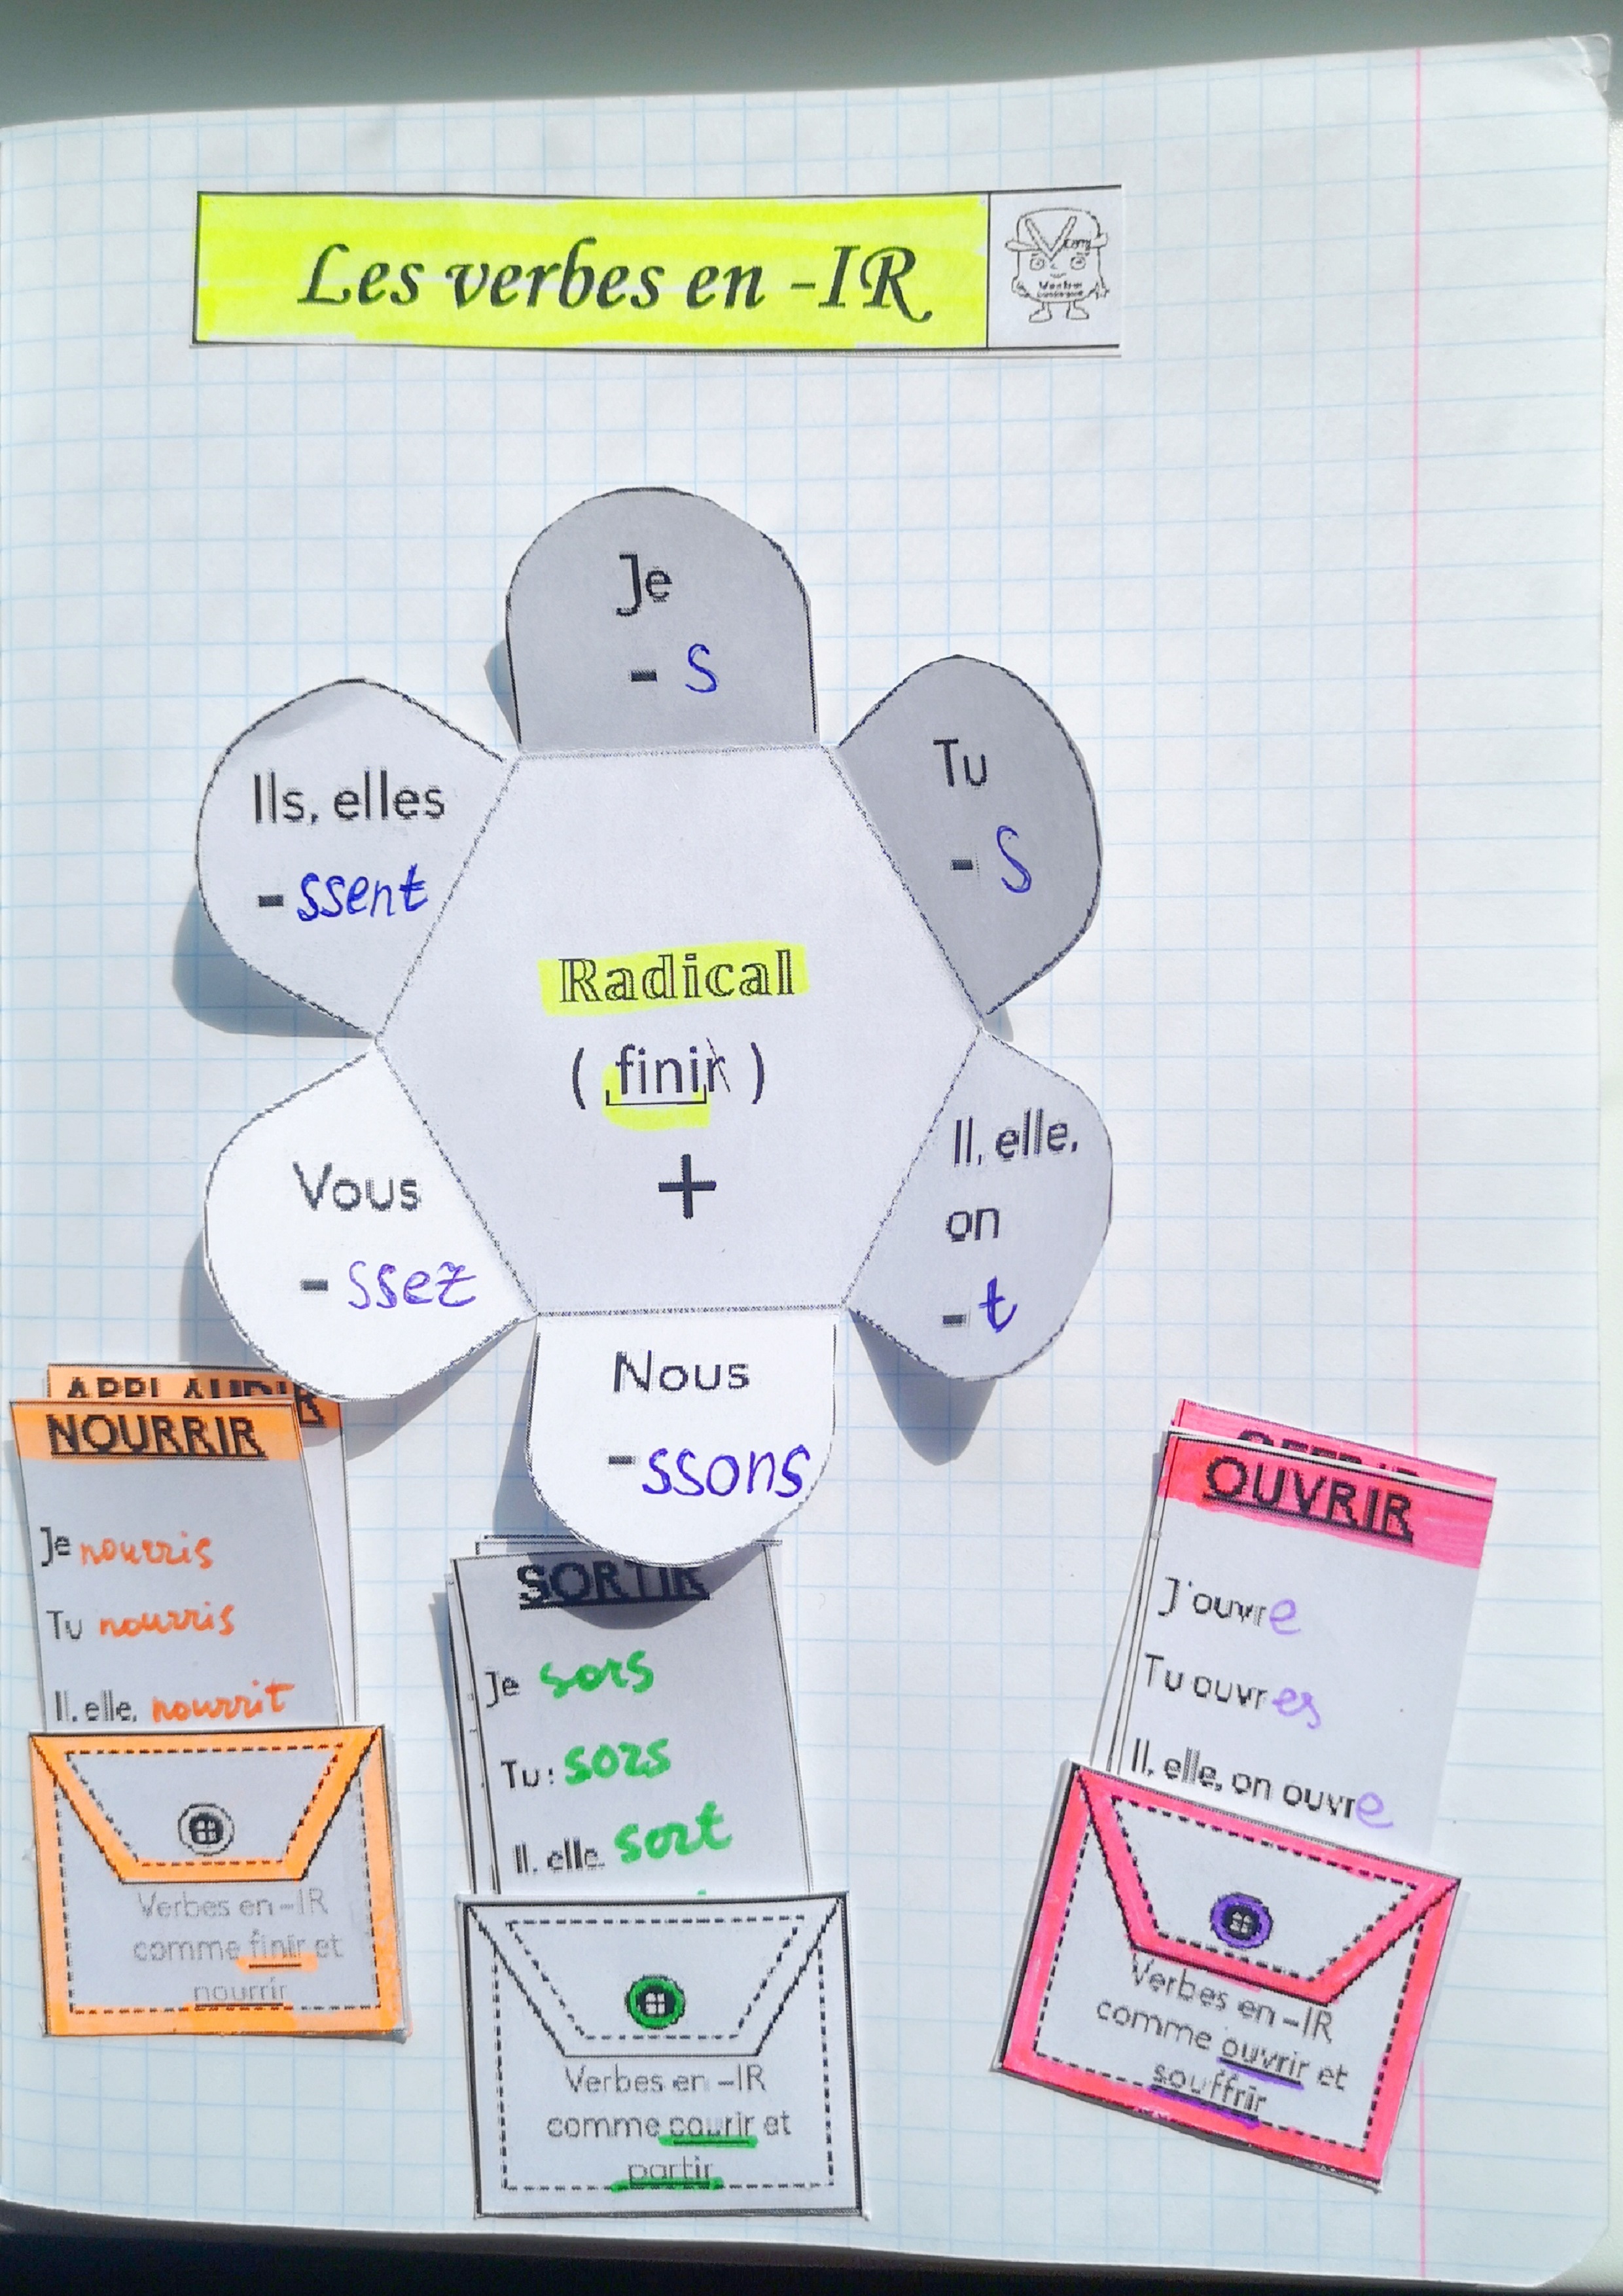 Les verbes en -IR
Je
- s
Tu
- s
Il, elle,
on
- t
Nous
- ssons
Vous
- ssez
Ils, elles
- ssent
Radical
( finir )
+
APPLAUDIR
NOURRIR
Je nourris
Tu nourris
Il, elle, nourrit
Verbes en -IR
comme finir et
nourrir
SORTIR
Je sors
Tu: sors
Il, elle, sort
Verbes en -IR
comme courir et
partir
OFFRIR
OUVRIR
J'ouvre
Tu ouvres
Il, elle, on ouvre
Verbes en -IR
comme ouvrir et
souffrir